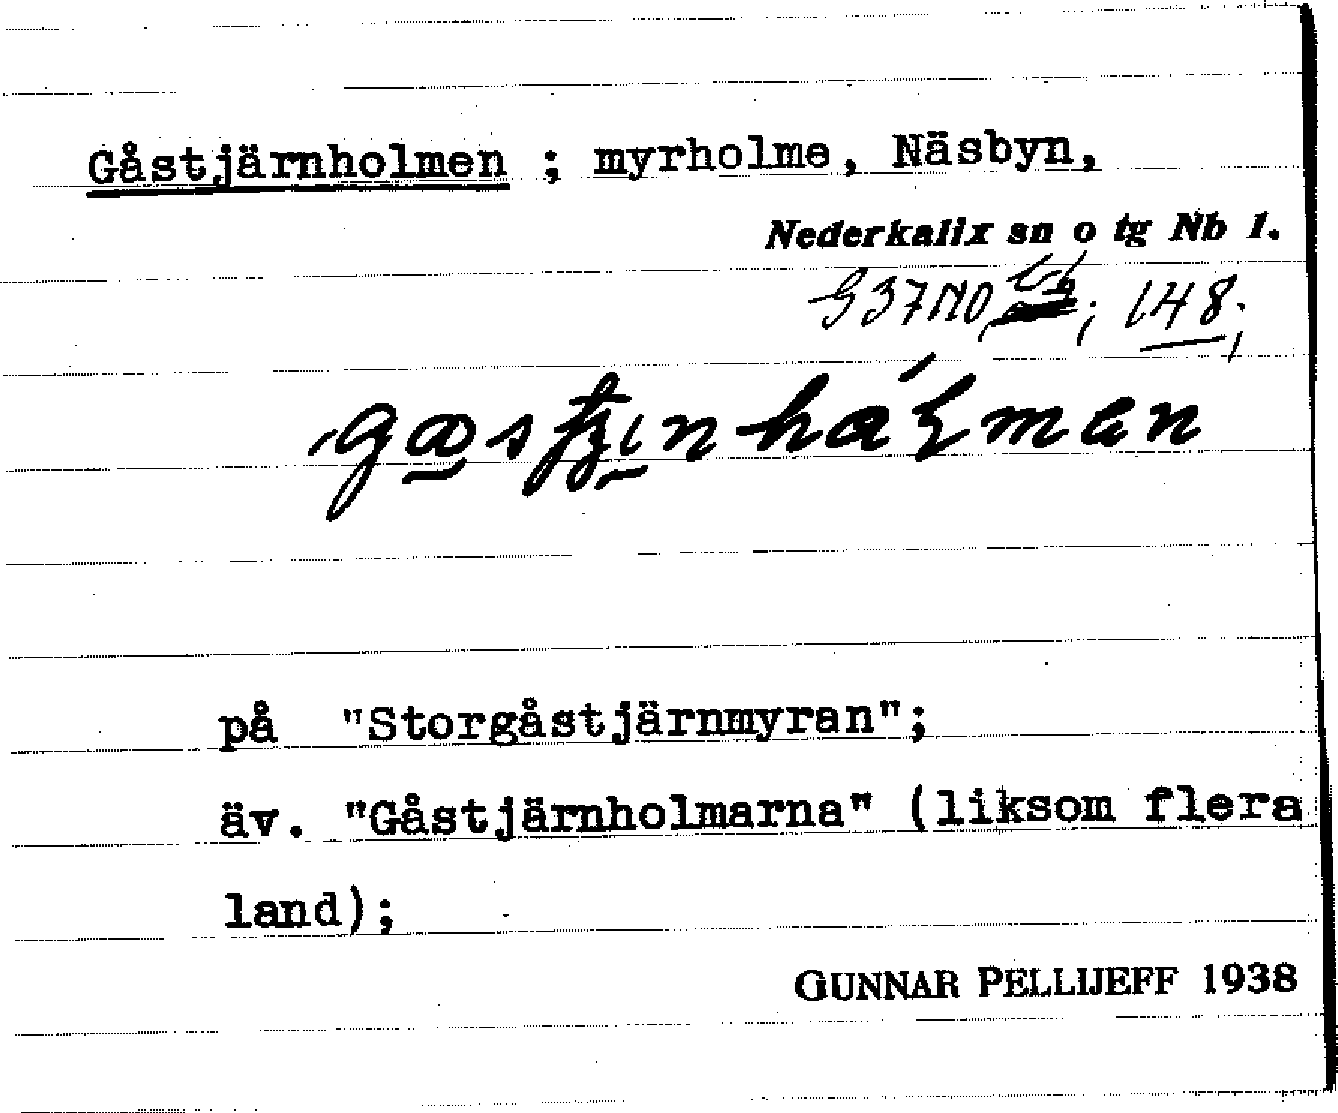 Gåstjärnholmen ; myrholme, Näsbyn,
Nederkalix sn o tg Nb 1.
G37NO, ; 148;
på "Storgåstjärnmyran";
äv. "Gåstjärnholmarna" (liksom flera
land);
GUNNAR PELLIJEFF 1938